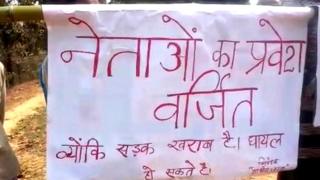 नेताओं का प्रवेश
वर्जित
क्योंकि सड़क खराब है। घायल
हो सकते है।